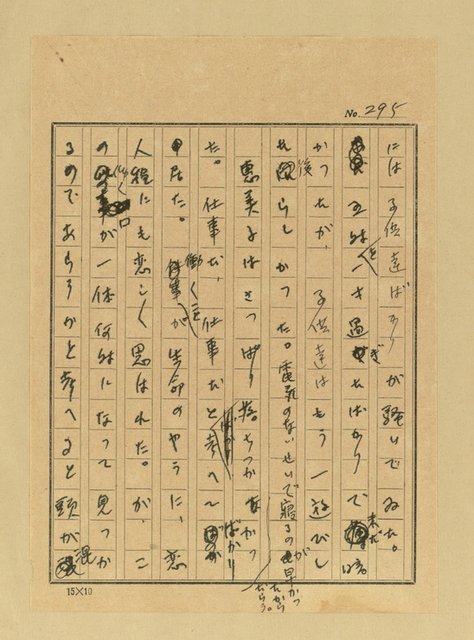 No. 295
には子供達ばかりが騒いでゐた。
五時を一寸過ぎたばかりで未だ暗
かつたが、子供達はもう一遊びし
た後らしかつた。電気のないせいで寝るのが早かつたからだらう。
恵美子はさつぱり落ちつかなかつ
た。仕事だ、仕事だと考へてばかり
居た。働くことが生命のやうに、恋
人程にも恋しく思はれた。が、こ
の働く口が一体何時になつて見つか
るのであらうかと考へると頭が混
15×10